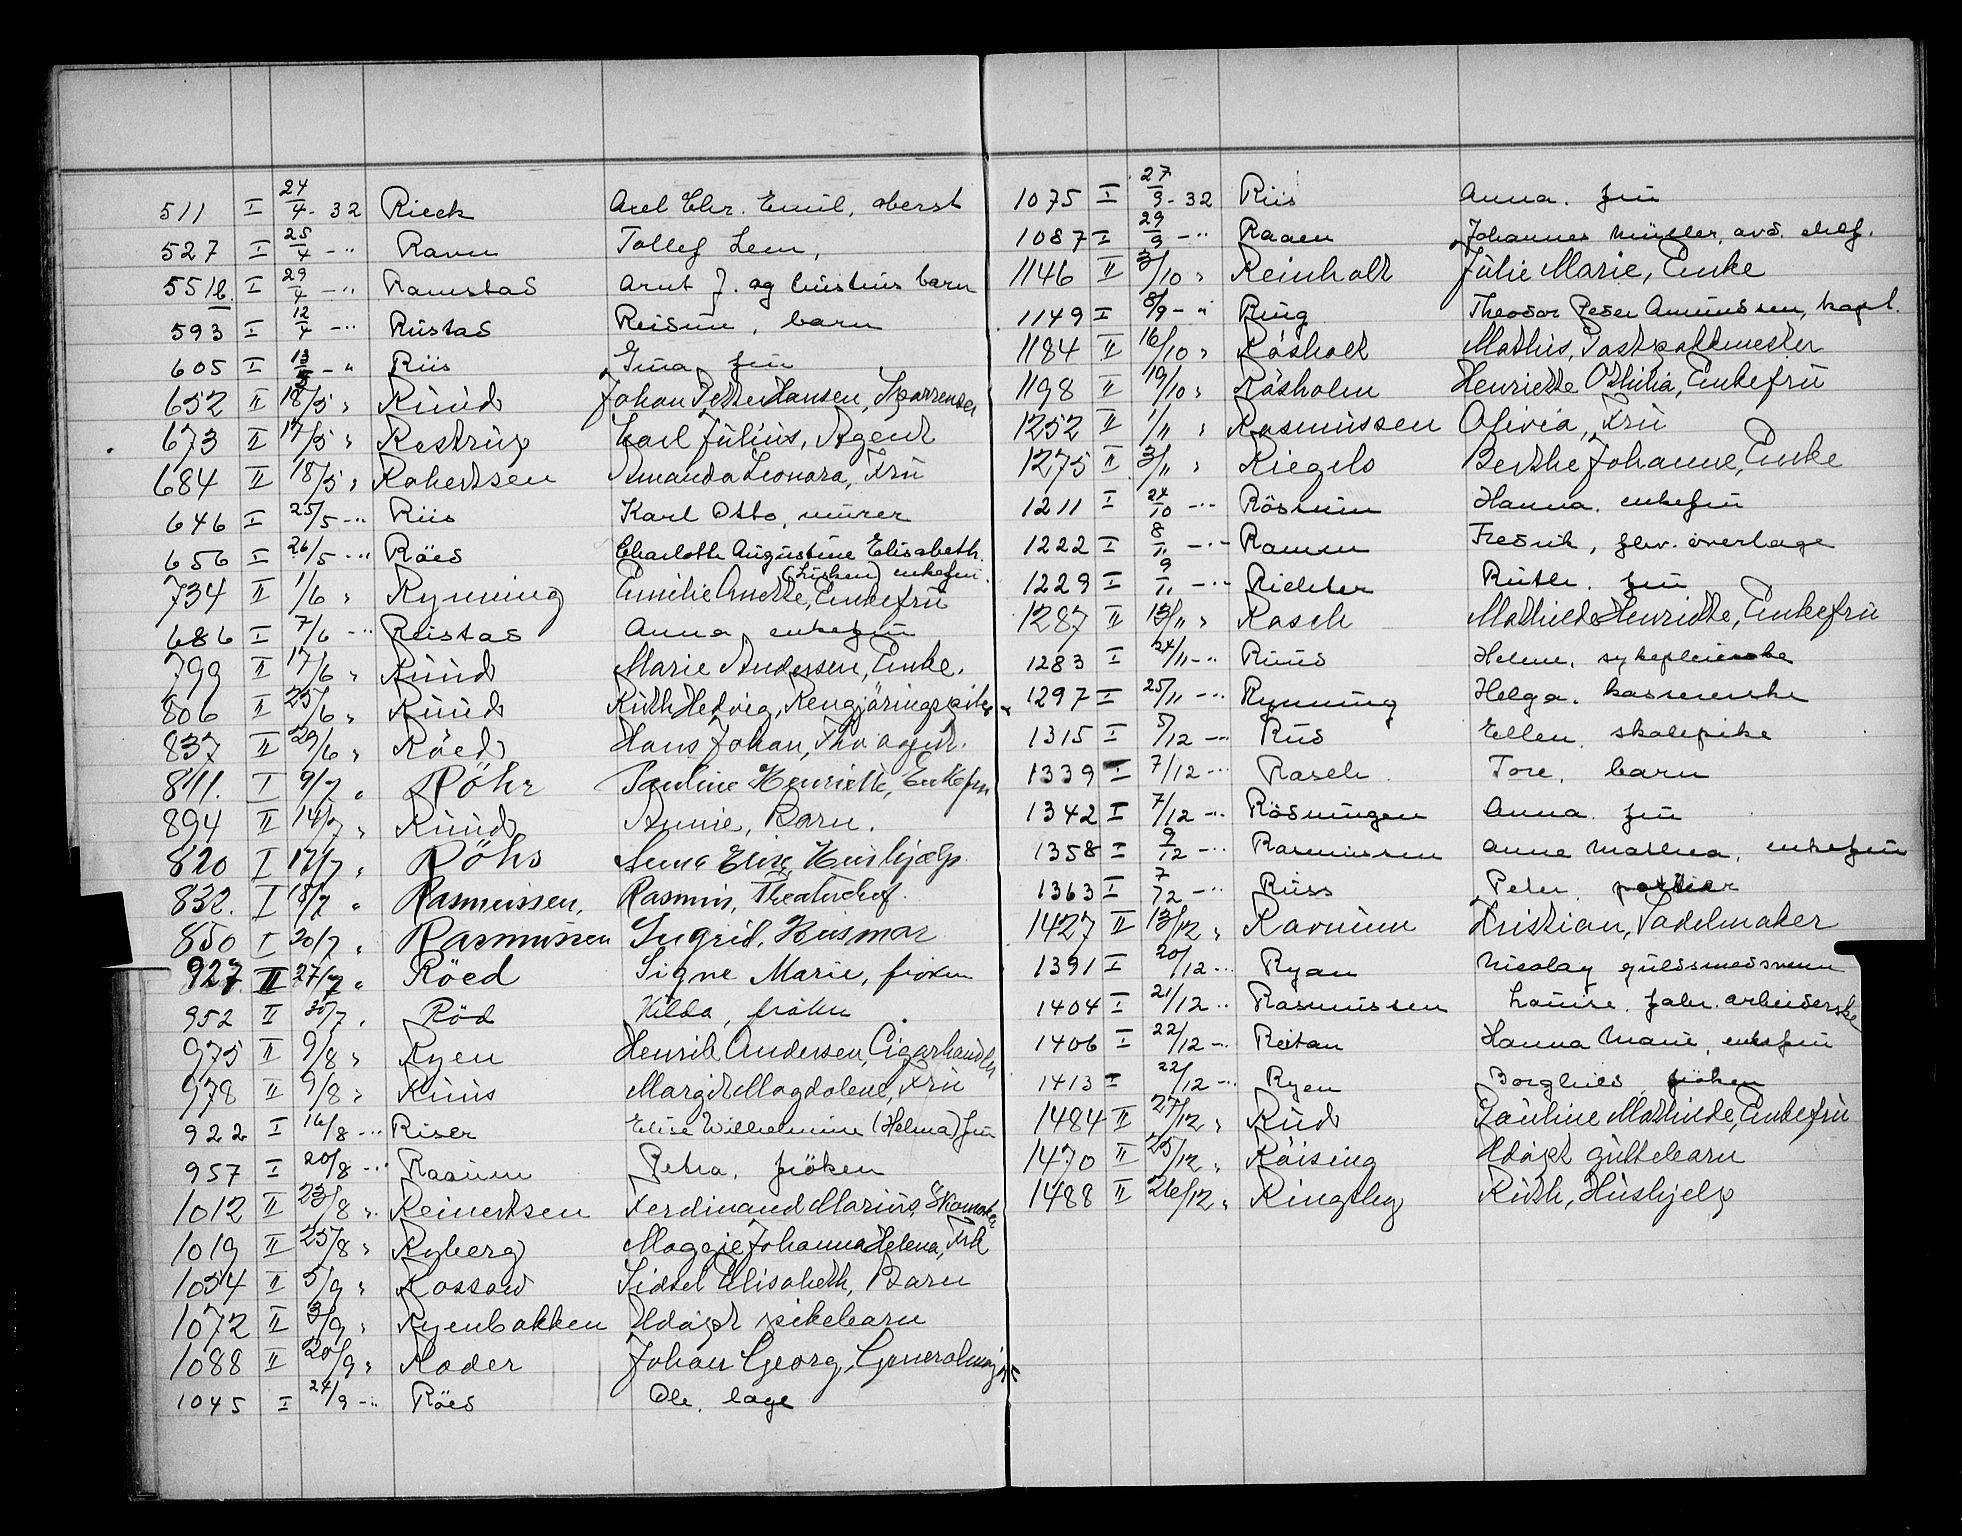 511 I 24/4 - 32 Rieck Axel Chr. Emil, oberst
527 I 25/4 - " Ravn Tollef Lem,
551b I 29/4 - " Ramstad Arnt J. og hustrus barn
593 I 12/4 - " Rustad Reidun, barn
605 I 13/5 - " Riis Gina fru
652 II 18/5 " Ruud Johan Petter Hansen,
673 II 17/5 " Rostrup Karl Julius, Agent
684 II 18/5 " Robertsen Amanda Leonora, Fru
646 I 25/5 - " Riis Karl Otto, murer
656 I 26/5 - " Röed Charlotte Augustine Elisabeth
(Lisken) enkefru
734 II 1/6 " Rynning Emilie Anette, Enkefru
686 I 7/6 - " Rustad Anna enkefru
799 II 17/6 " Ruud Marie Andersen, Enke.
806 II 25/6 " Ruud Ruth Hedvig, Rengjöringspike
837 II 29/6 " Röed Hans Johan, Fhv agent.
811. I 9/7 " Röhr Pauline Henriette, Enkefru
894 II 14/7 " Ruud Annie, Barn.
820 I 17/7 " Röhs Anna Elise, Hushjælp.
832. I 18/7 " Rasmussen, Rasmus, Theaterchef.
850 I 20/7 " Rasmussen Ingrid, Husmor
927 II 27/7 " Röed Signe Marie, fröken
952 II 30/7 " Röd Hilda, fröken
975 II 9/8 " Ryen Henrik Andersen, Cigarhandler
978 II 9/8 " Ruus Margit Magdalene, Fru
922 I 16/8 - " Riser Elise Wilhelmine (Helma) fru
957 I 20/8 - " Raanum Petra, fröken
1012 II 23/8 " Reinertsen Ferdinand Marius, Skomaker
1019 II 25/8 " Ryberg Maggie Johanna Helena, Frk
1054 II 5/9 " Rossow Sidsel Elisabeth, Barn
1072 II 3/9 " Ryenbakken Udöpt pikebarn
1088 II 20/9 " Roder Johan Georg, Generalmajor
1045 I 24/9 - " Röed Ole, lage
1075 I 27/9 - 32 Riis Anna. fru
1087 I 29/9 - " Raaen Johannes Müller, avd. chef.
1146 II 3/10 " Reinholt Julie Marie, Enke
1149 I 8/9 - " Ring Theodor Peder Amundsen, kapt.
1184 II 16/10 " Rösholt Mathis, Postpakkmester
1198 II 19/10 " Rösholm Henriette Othilia, Enkefru
1252 II 1/11 " Rasmussen Olivia, Fru
1275 II 3/11 " Riegels Berthe Johanne, Enke
1211 I 24/10 - " Rösrum Hanna, enkefru
1222 I 8/11 - " Ramm Fredrik, fhv. overlage
1229 I 9/11 - " Richter Ruth. fru
1287 II 13/11 " Rasch Mathilde Henriette, Enkefru
1283 I 24/11 - " Ruud Helene, sykepleierske
1297 I 25/11 - " Rynning Helga. kassererske
1315 I 5/12 - " Rud Ellen, skolepike
1339 I 7/12 - " Rasch Tore, barn
1342 I 7/12 - " Rösningen Anna. fru
1358 I 9/12 - " Rasmussen Anne Mathea, enkefru
1363 I 7/12 - " Russ Peter, portier
1427 II 13/12 " Ravnum Kristian, Sadelmaker
1391 I 20/12 - " Ryan Nicolay guldsmedsvenn
1404 I 21/12 - " Rasmussen Louise, fabr. arbeiderske
1406 I 22/12 - " Reitan Hanna Marie, enkefru
1413 I 22/12 - " Ryen Borghild fröken
1484 II 27/12 " Rud Pauline Mathilde, Enkefru
1470 II 25/12 " Röising Udöpt guttebarn
1488 II 26/12 " Ringsby Ruth, Hushjelp